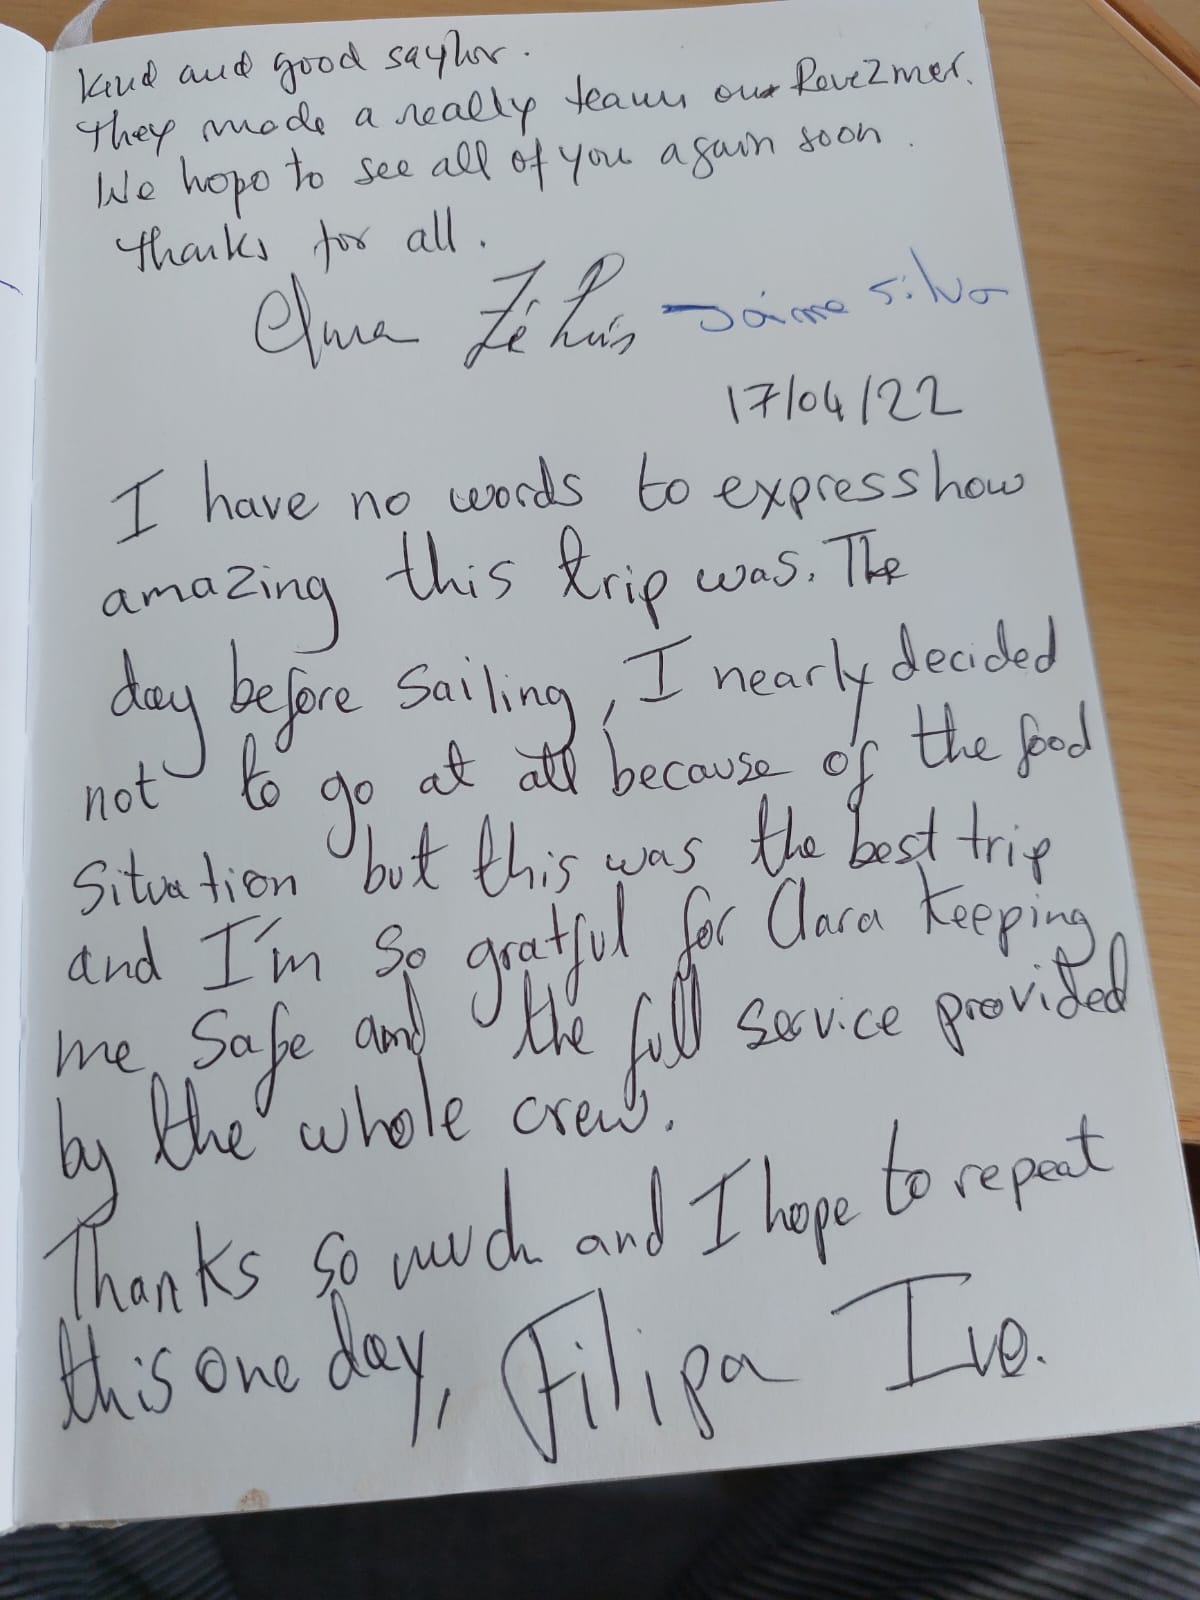 kind and good saylor.
They made a really team our Reve2mer.
We hope to see all of you again soon.
thanks for all.
Elma Zé Luís Jaime Silva
17/04/22
I have no words to express how
amazing this trip was. The
day before sailing, I nearly decided
not to go at all because of the food
situation but this was the best trip
and I'm so gratful for Clara keeping
me safe and the full service provided
by the whole crew.
Thanks so much and I hope to repeat
this one day, Filipa Ivo.